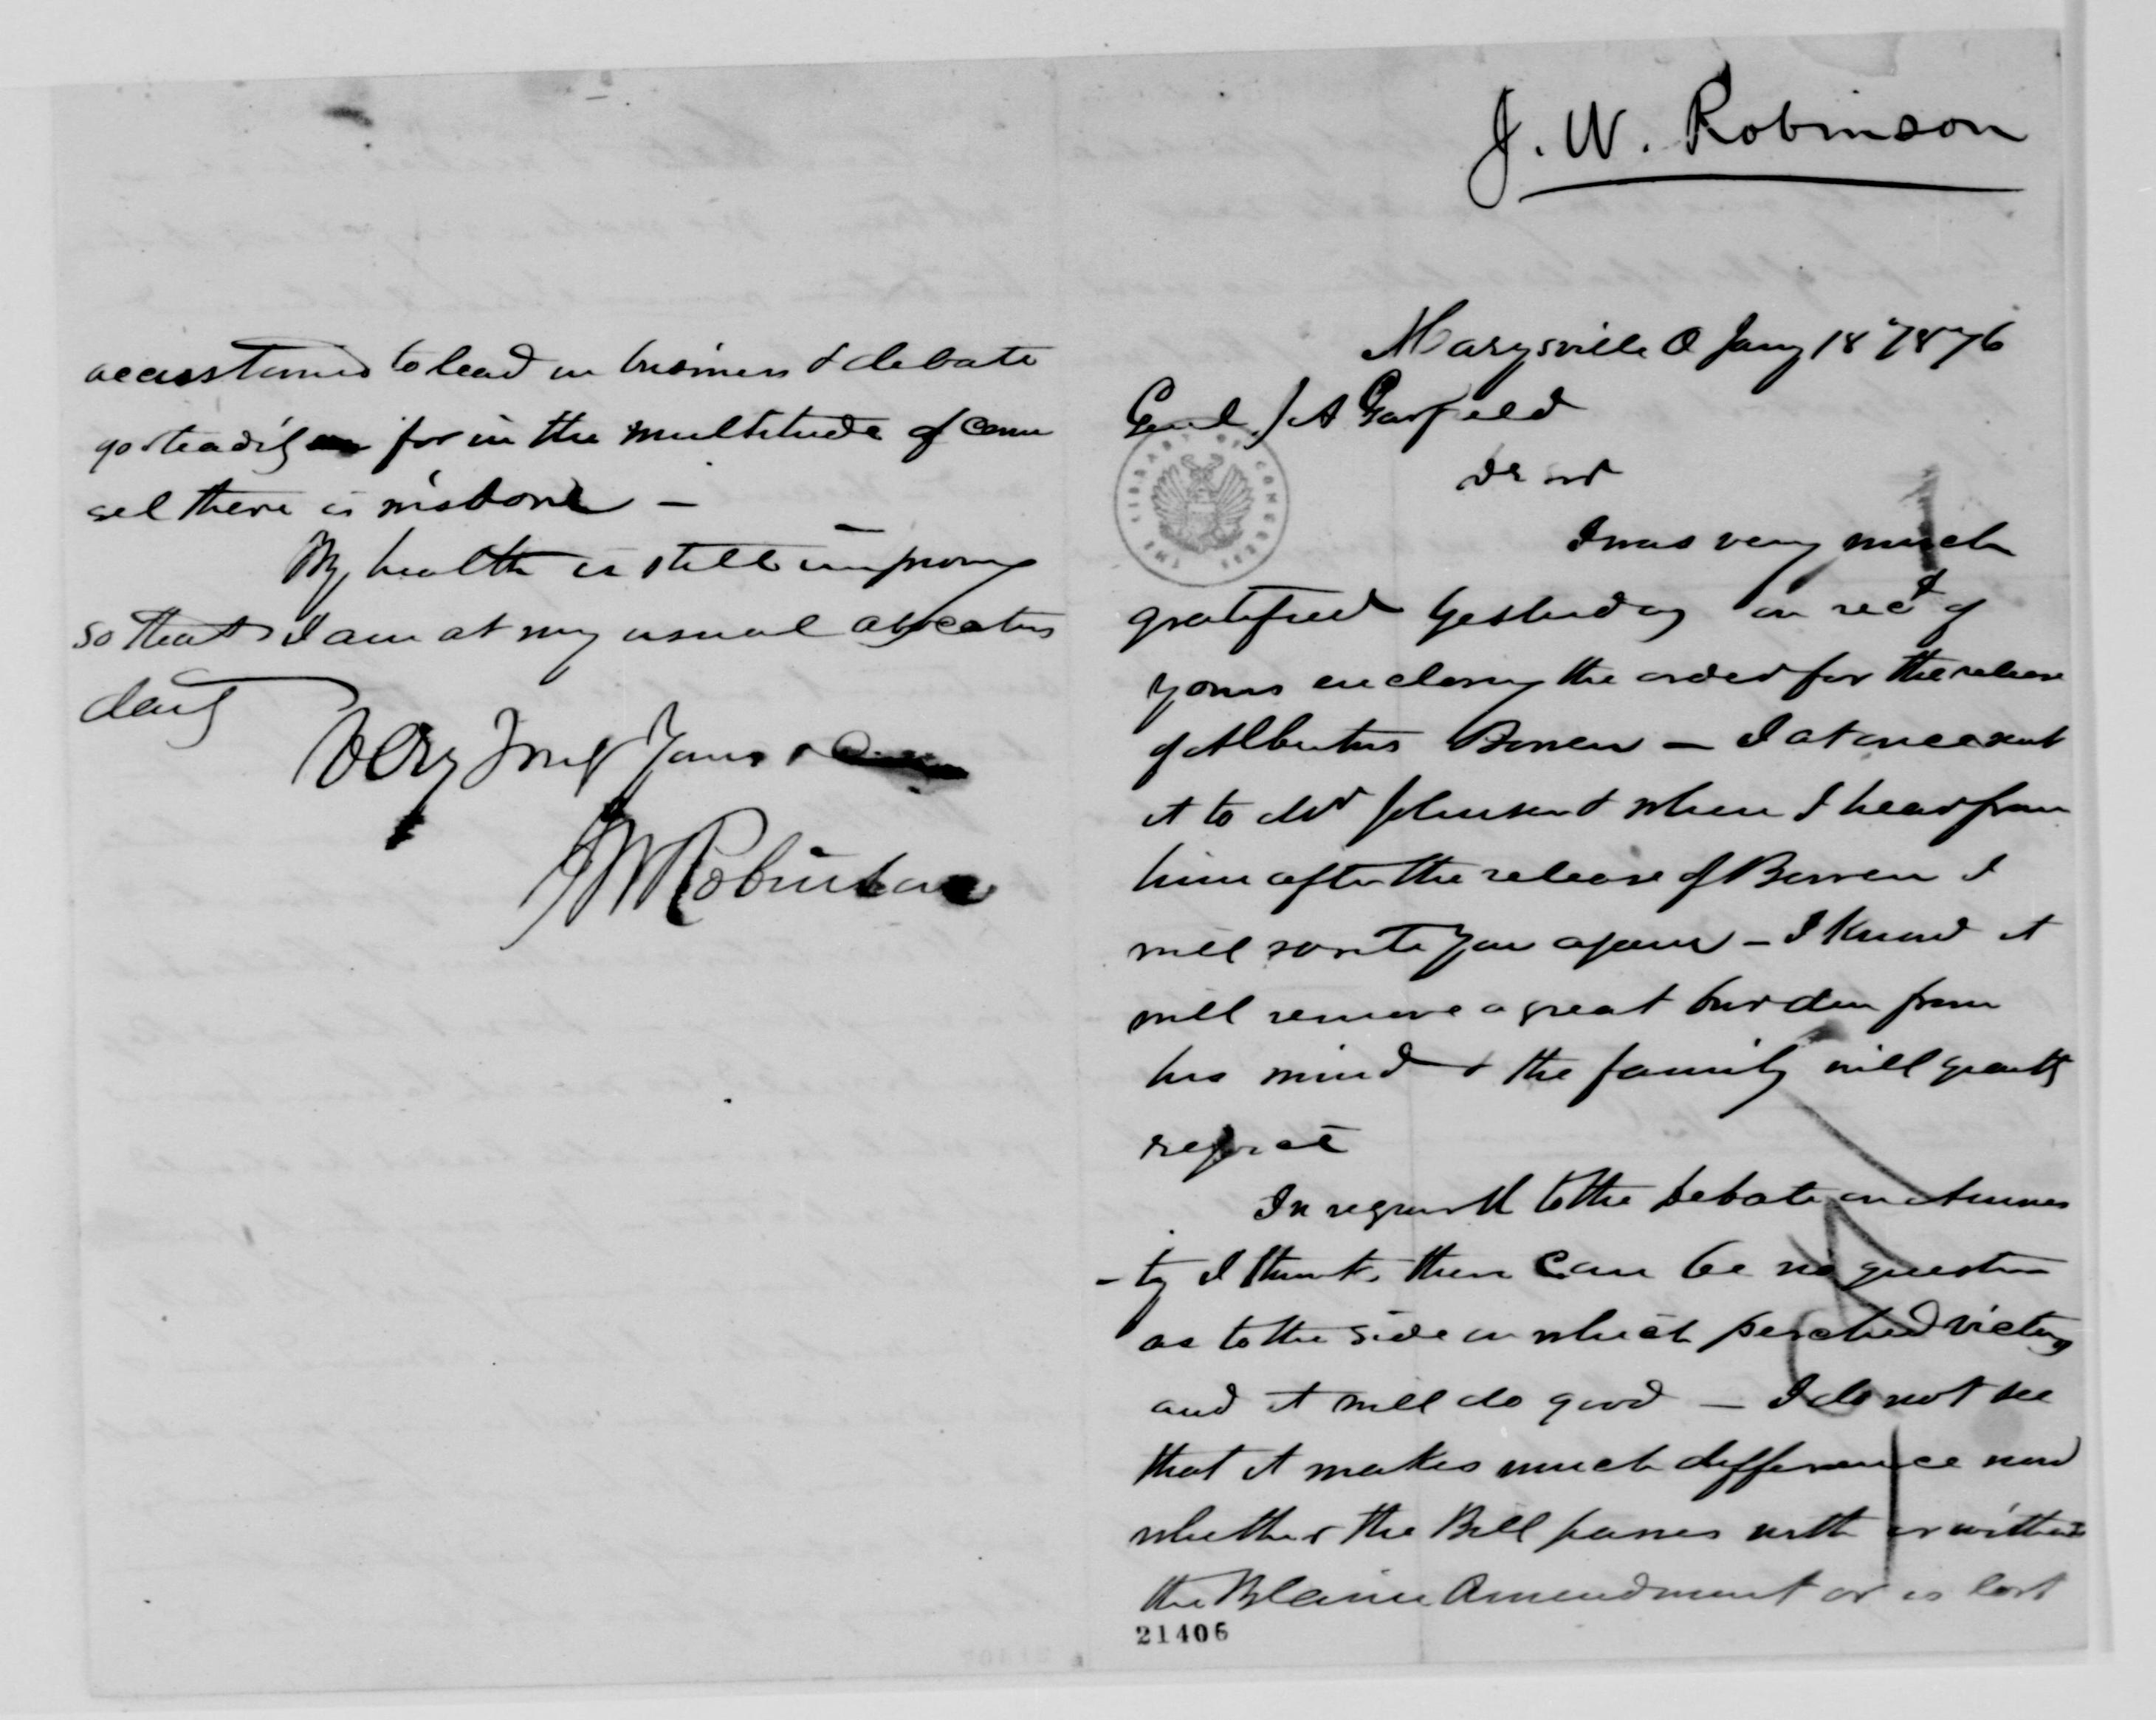 J. W. Robinson
Marysville O Jany 18 1876
Genl J A Garfield
Dr Sir
I was very much
gratified yesterday on recd of
yours enclosing the order for the release
of Albertus Bowen — I at once sent
it to Mr Johnson & when I hear from
him after the release of Bowen I
will write you again — I know it
will remove a great burden from
his mind & the family will greatly
rejoice
In regard to the debate on Amnes
-ty I think there can be no question
as to the side on which perched victory
and it will do good — I do not see
that it makes much difference now
whether the Bill passes with or without
the Blaine Amendment or is lost
21406
accustomed to lead in business & debate
go steadily for in the multitude of coun
sel there is wisdom —
My health is still improving
so that I am at my usual avocations
daily
Very Truly Yours
J W Robinson
THE LIBRARY OF CONGRESS